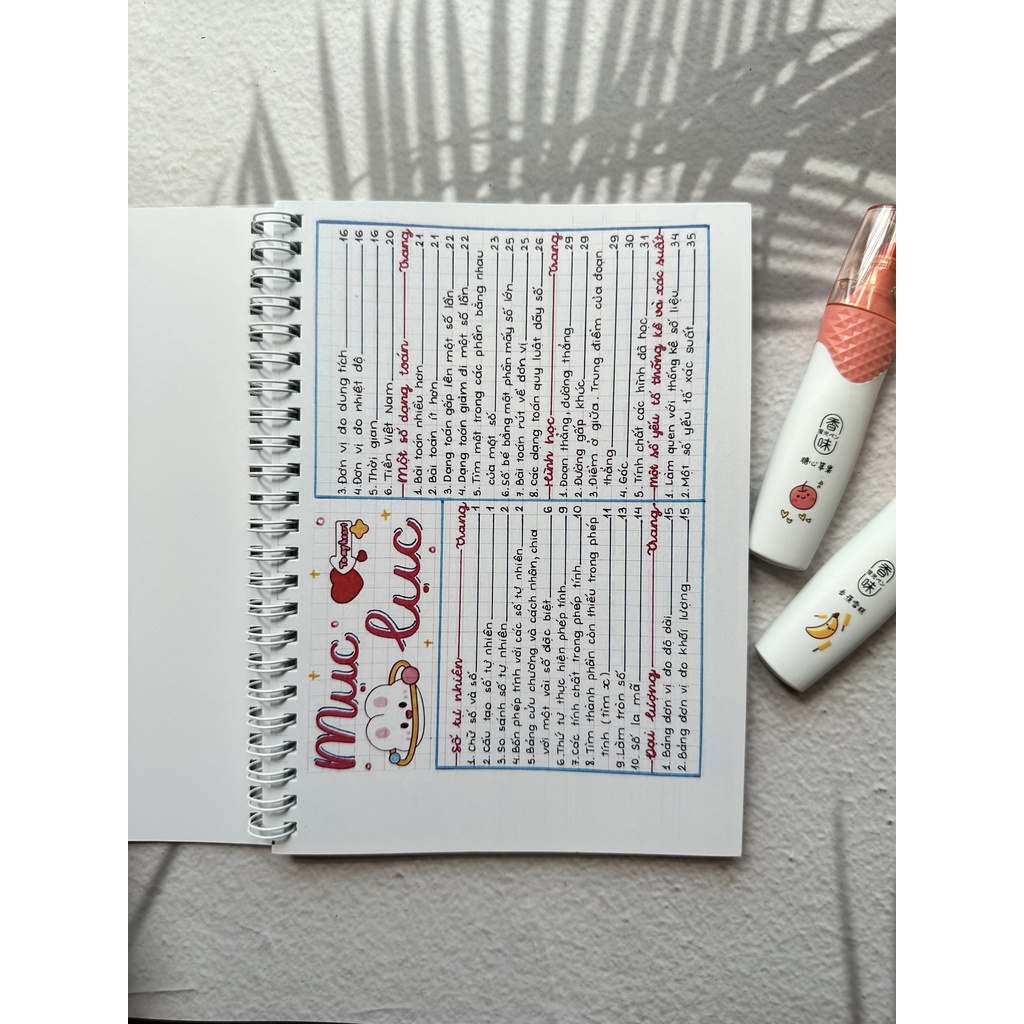 Mục lục
Toán học
Số tự nhiên Trang
1. Chữ số và số 1
2. Cấu tạo số tự nhiên 1
3. So sánh số tự nhiên 2
4. Bốn phép tính với các số tự nhiên 2
5. Bảng cửu chương và cách nhân, chia
với một vài số đặc biệt 6
6. Thứ tự thực hiện phép tính 9
7. Các tính chất trong phép tính 10
8. Tìm thành phần còn thiếu trong phép
tính (tìm x) 11
9. Làm tròn số 13
10. Số la mã 14
Đại lượng Trang
1. Bảng đơn vị đo độ dài 15
2. Bảng đơn vị đo khối lượng 15
3. Đơn vị đo dung tích 16
4. Đơn vị đo nhiệt độ 16
5. Thời gian 16
6. Tiền Việt Nam 20
Một số dạng toán Trang
1. Bài toán nhiều hơn 21
2. Bài toán ít hơn 21
3. Dạng toán gấp lên một số lần 22
4. Dạng toán giảm đi một số lần 22
5. Tìm một trong các phần bằng nhau
của một số 23
6. Số bé bằng một phần mấy số lớn 25
7. Bài toán rút về đơn vị 25
8. Các dạng toán quy luật dãy số 26
Hình học Trang
1. Đoạn thẳng, đường thẳng 29
2. Đường gấp khúc 29
3. Điểm ở giữa. Trung điểm của đoạn
thẳng 29
4. Góc 30
5. Tính chất các hình đã học 31
Một số yếu tố thống kê và xác suất
1. Làm quen với thống kê số liệu 34
2. Một số yếu tố xác suất 35
香味
香味